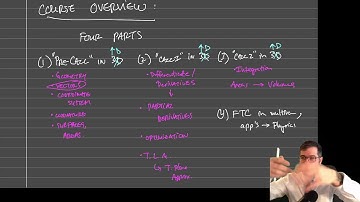 COURSE OVERVIEW:
FOUR PARTS
(1) "PRE-CALC" IN 3D ↑D
• GEOMETRY
• VECTORS
• COORDINATE
SYSTEM
• CURVATURE
• SURFACES,
(2) "CALC I" IN 3D ↑D
• Differentiate /
Derivatives
↓
• PARTIAL
DERIVATIVES
• OPTIMIZATION
• T. L. A
↳ T. Plane
Approx
(3) "CALC 2" IN 3D ↑D
• Integration
Areas → Volumes
(4) FTC in
app's → Physics